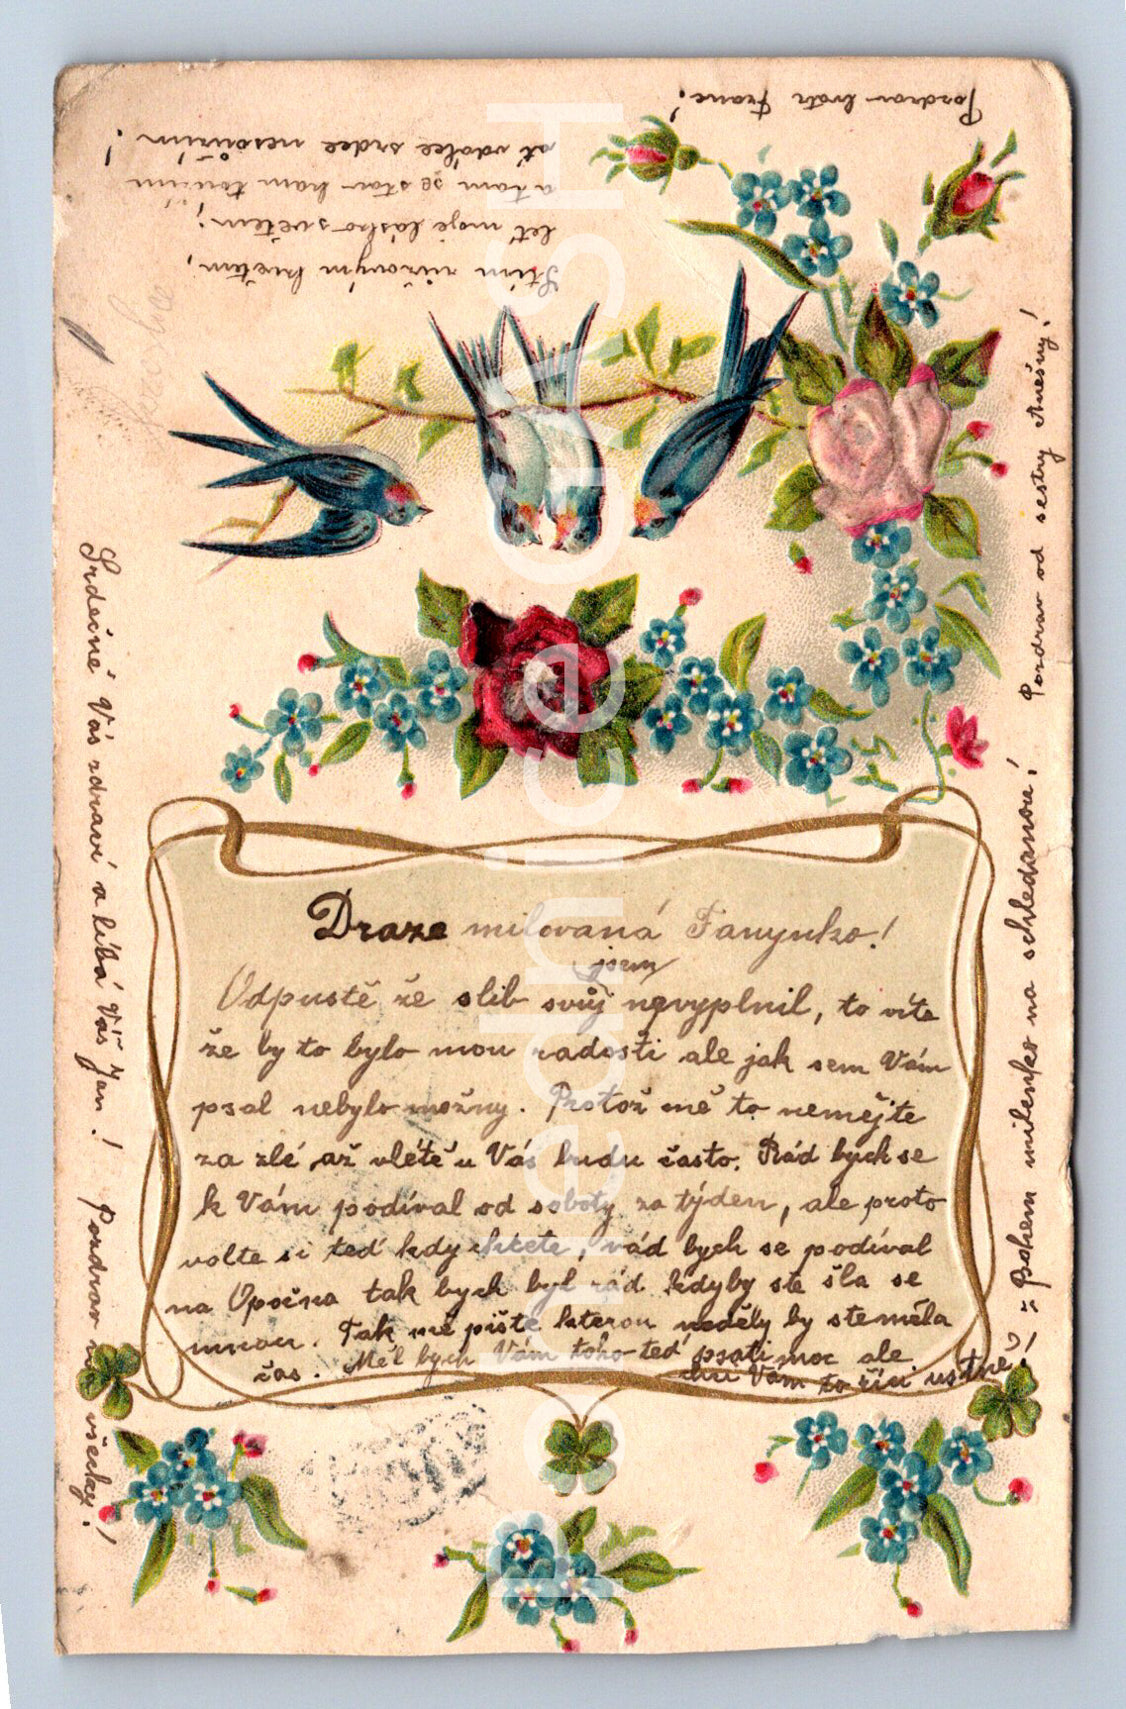 Draze milovaná Fanynko!
jsem
Odpustě že slib svůj nevyplnil, to víte
že by to bylo mou radosti ale jak sem Vám
psal nebylo možny. Protož mě to nemějte
za zlé až vlétě u Vás budu často. Rád bych se
k Vám podíval od soboty za týden, ale proto
volte si teď kdy chcete, rád bych se podíval
na Opočna tak bych byl rád kdyby ste šla se
mnou. Tak mě pište kterou neděly by ste měla
čas. Měl bych Vám toho teď psati moc ale
chci Vám to říci ustně!
= Bohem milenko na schledanou!
Pozdrav od sestry Anešny!
Pozdrav bratr Franc!
Stím růžovým květem,
leť moje lásko světem;
a tam se stav kam toužím
ať vdálce srdce nesoužím!
Srdečně Vás zdraví a líbá Váš Jan!
Pozdrav na všecky!
PohledniceČASH